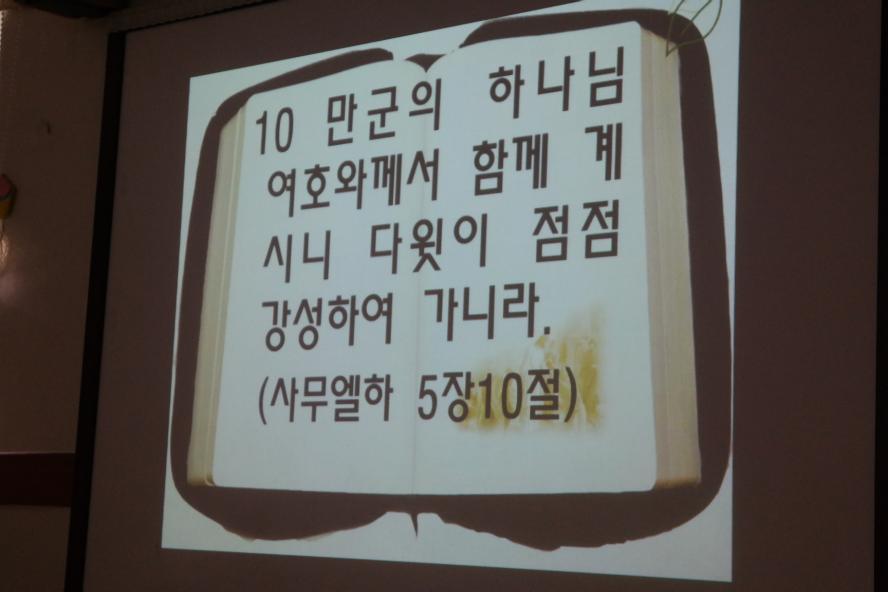 10 만군의 하나님
여호와께서 함께 계
시니 다윗이 점점
강성하여 가니라.
(사무엘하 5장10절)